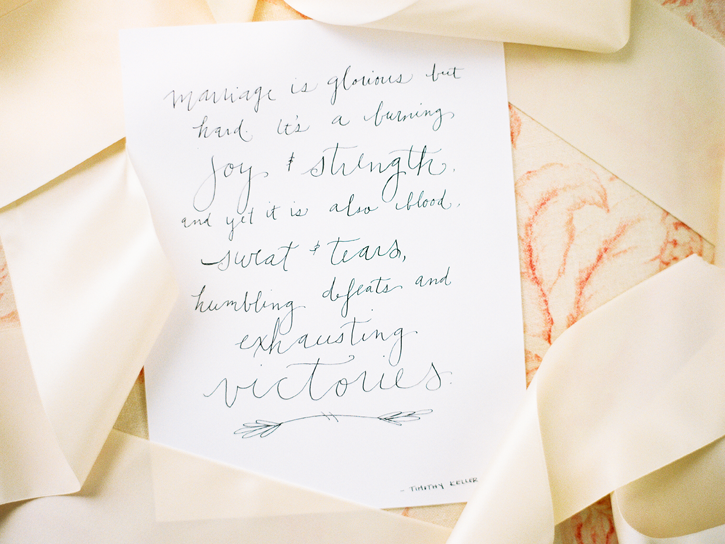 marriage is glorious but
hard. it's a burning
joy & strength.
and yet it is also blood,
sweat & tears,
humbling defeats and
exhausting
victories.
- TIMOTHY KELLER